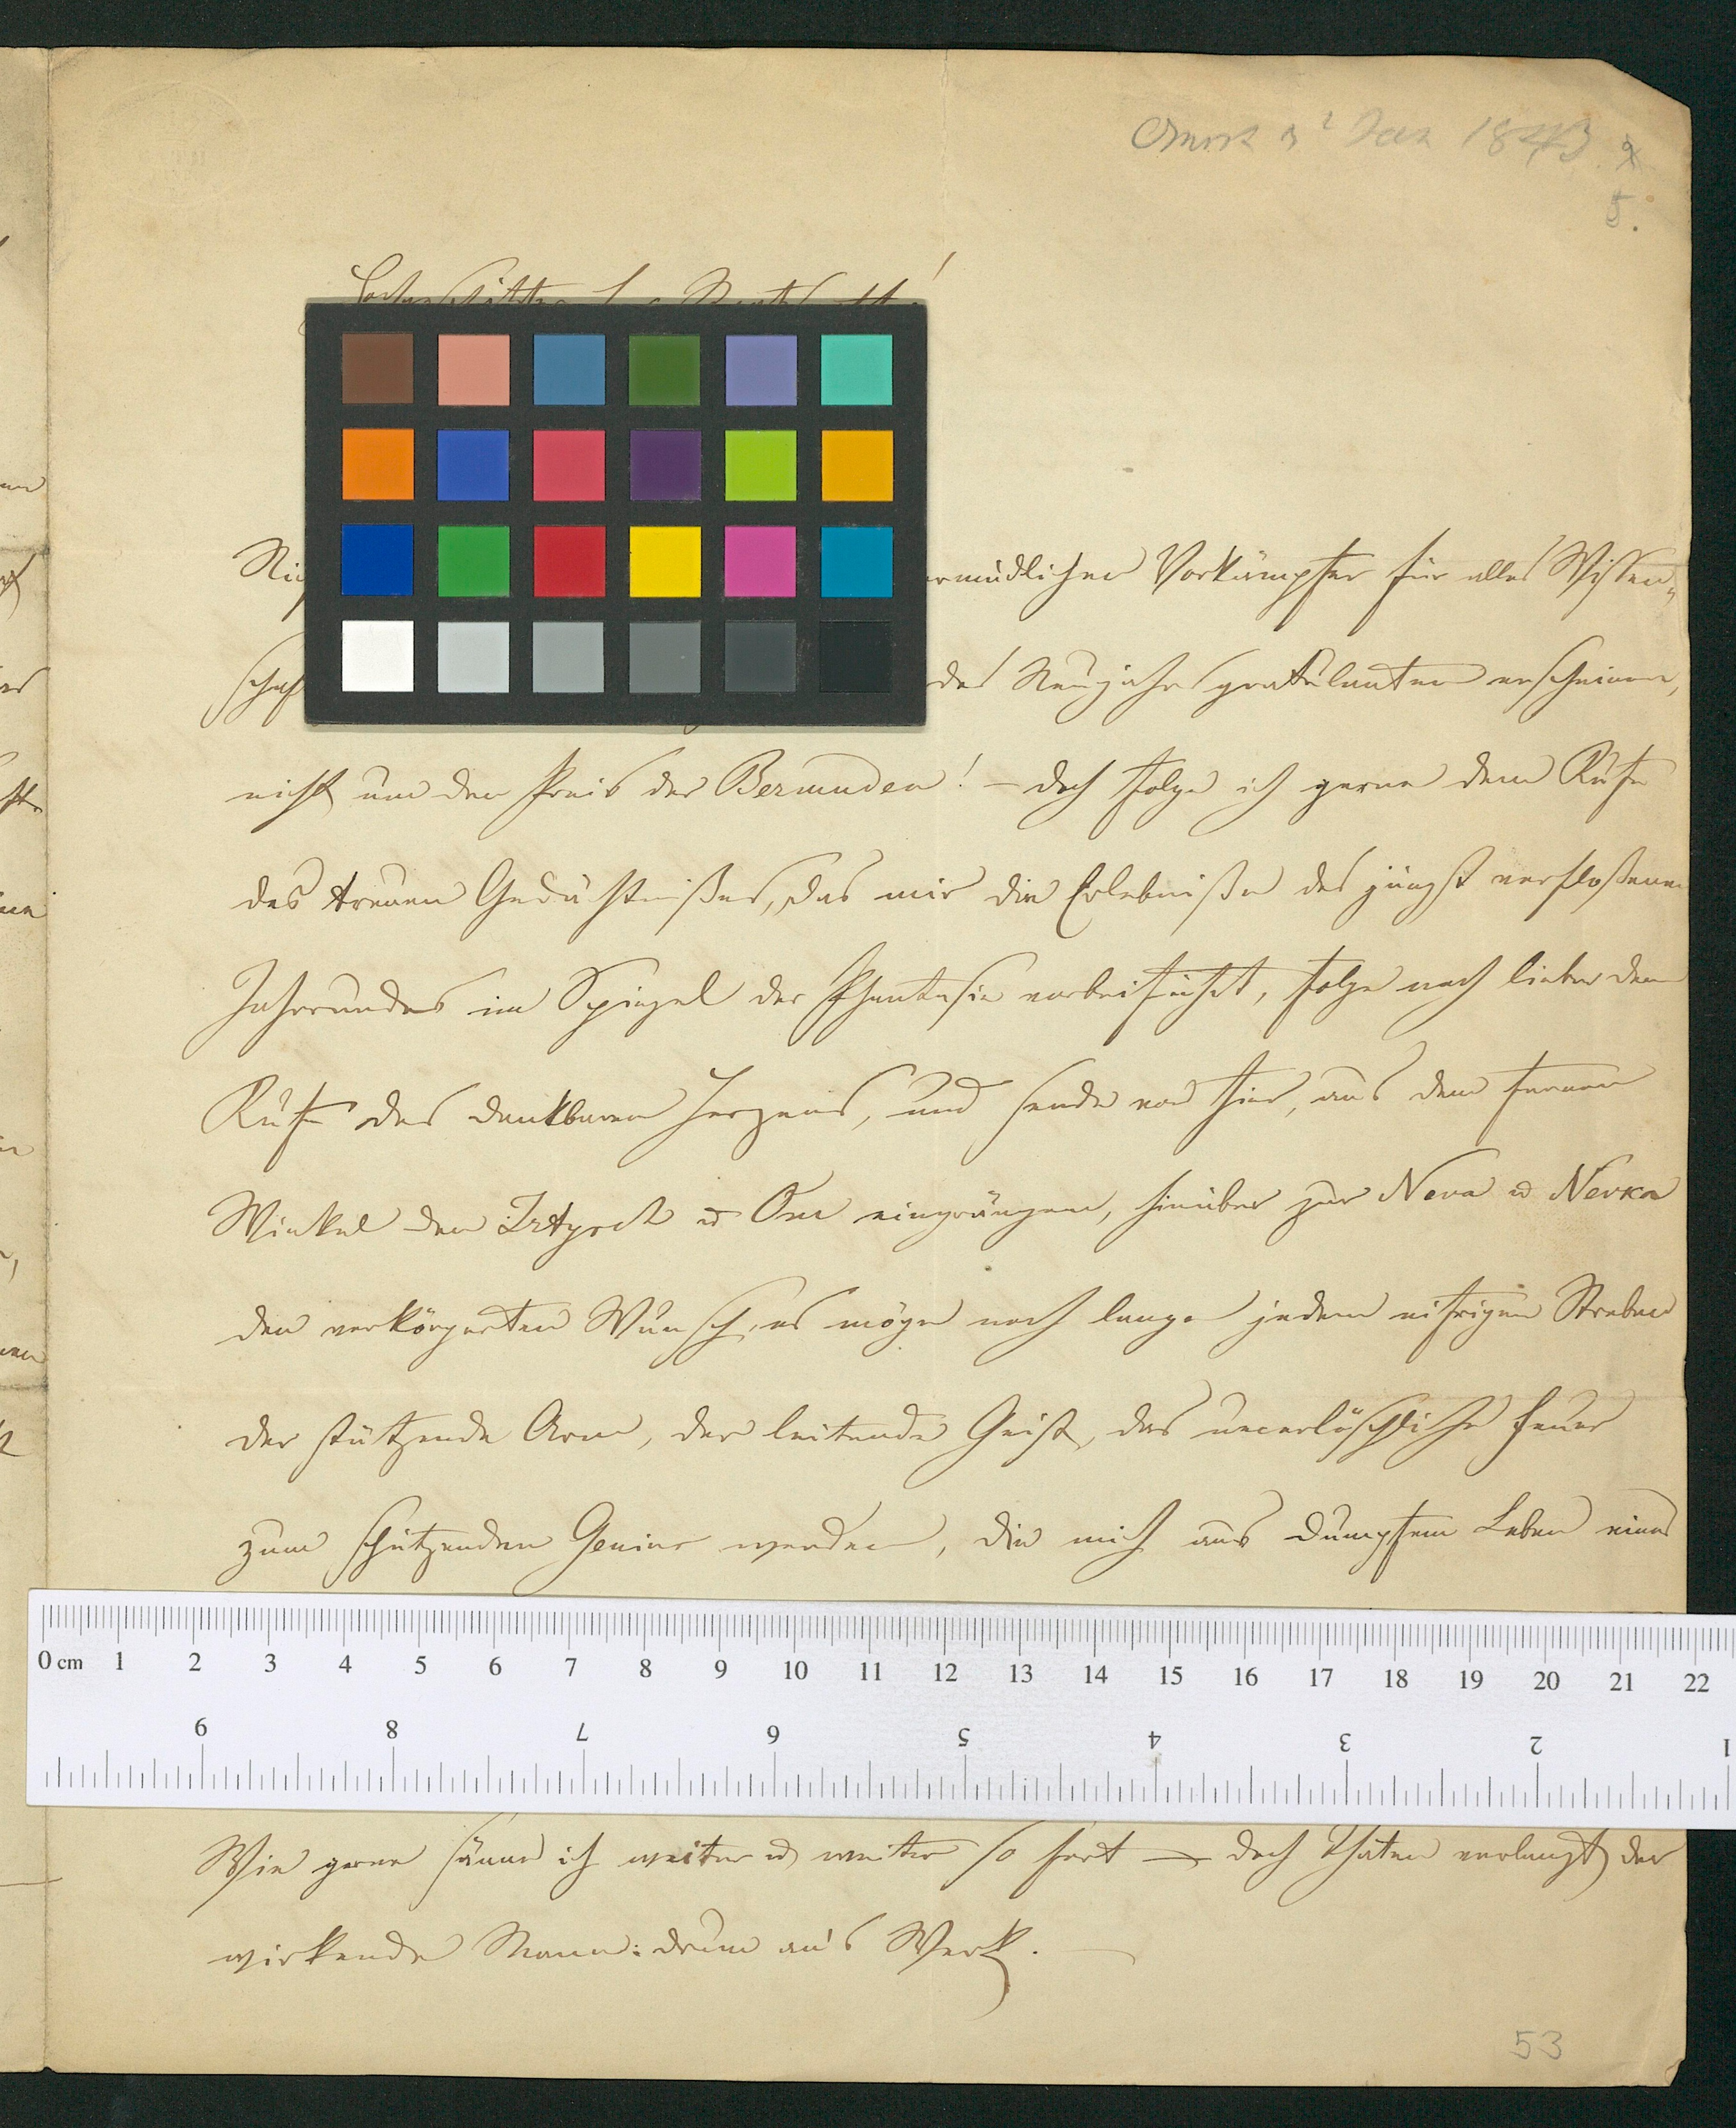 Omsk d 2 Jan 1843
5.
Hochgeschätzter
ermüdlicher Vorkämpfer für alles Wissen-
schaf des Neujahrsgratulanten erscheinen,
nicht um den Preis der Bermuden! – doch folge ich gerne dem Rufe
des treuen Gedächtnißes, das mir die Erlebniße des jüngst verfloßenen
Jahrrundes im Spiegel der Phantasie vorbeiführt, folge noch lieber dem
Rufe des dankbaren Herzens, und sende von hier, aus dem fernen
Winkel den Irtysch u Om eingrängen, hinüber zur Neva u Nevka
den verkörperten Wunsch, es möge noch lange jedem eifrigen Streben
der stützende Arm, der leitende Geist, das unerlöschliche Feuer
zum schützenden Genius werden, die mich aus dumpfem Leben eines
0 cm 1 2 3 4 5 6 7 8 9 10 11 12 13 14 15 16 17 18 19 20 21 22
9 8 7 6 5 4 3 2 1
Wie gerne sänne ich weiter u weiter so fort – doch Thaten verlangt der
wirkende Mann: drum an's Werk. –
53